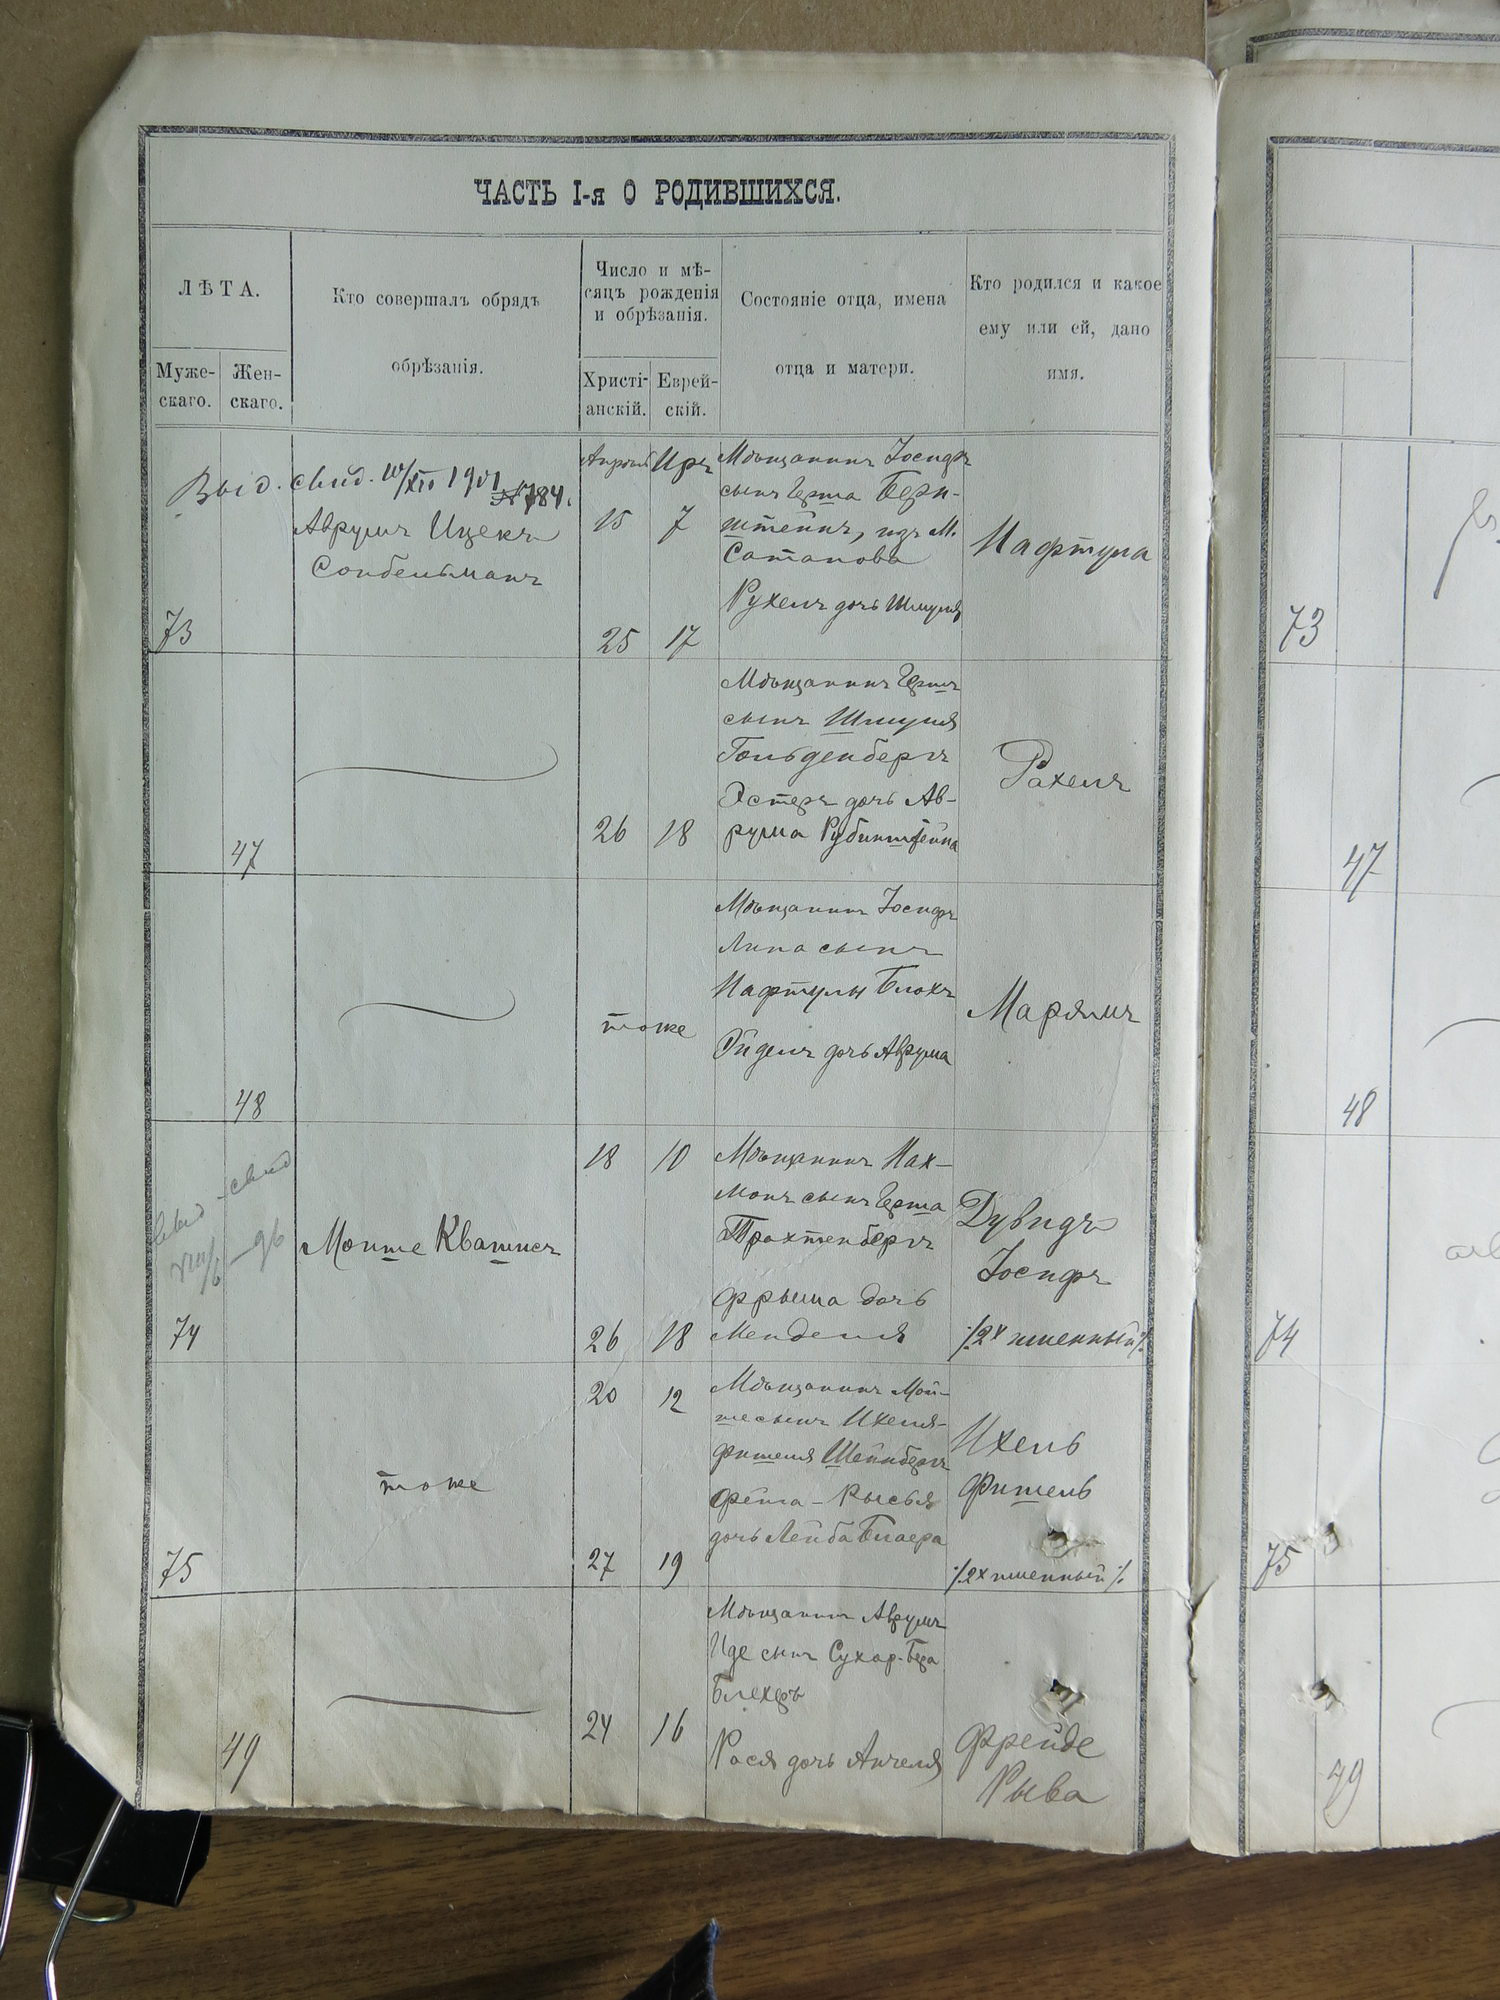 ЧАСТЬ I-я О РОДИВШИХСЯ.
ЛѢТА.
Муже-
скаго.
Жен-
скаго.
Кто совершалъ обрядъ
обрѣзанія.
Число и мѣ-
сяцъ рожденія
и обрѣзанія.
Христі-
анскій.
Еврей-
скій.
Состояніе отца, имена
отца и матери.
Кто родился и какое
ему или ей, дано
имя.
Выд. свид. 10/XII 1901 № 784.
Аврумъ Ицекъ
Сойбельманъ
73
Апрѣль Иръ
15 7
25 17
Мѣщанинъ Іосифъ
сынъ Герша Берн-
штейнъ, изъ М.
Сатанова
Рухель дочь Шмуля
Нафтула
73
47
26 18
Мѣщанинъ Гершъ
сынъ Шмуля
Гольденбергъ
Эстеръ дочь Ав-
рума Рубинштейна
Рахель
47
48
тоже
Мѣщанинъ Іосифъ
Липа сынъ
Нафтулы Блохъ
Эйдель дочь Аврума
Марямъ
48
выд свид
VIII/6
74
Мойше Кватисъ
18 10
26 18
Мѣщанинъ Нах-
монъ сынъ Герша
Трахтенбергъ
Фрыма дочь
Менделя
Дувидъ
Іосифъ
/2х имен­ный/
74
75
тоже
20 12
27 19
Мѣщанинъ Мой-
ше сынъ Ихеля-
Фишеля Шейнбергъ
Фейга-Рысья
дочь Лейба Блаера
Ихель
Фишель
/2х именный/
75
49
24 16
Мѣщанинъ Аврумъ
Иде сынъ Сухар-Бера
Блехеръ
Рася дочь Анчеля
Фрейде
Рыва
49